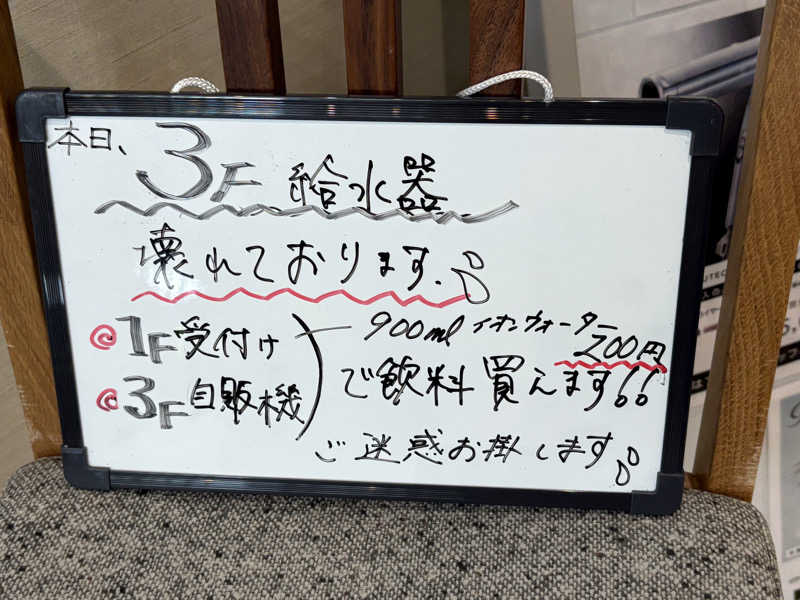 本日、
3F 給水器
壊れております。
◎1F受付け
◎3F自販機
900ml イオンウォーター
200円
で飲料買えます!!
ご迷惑お掛します